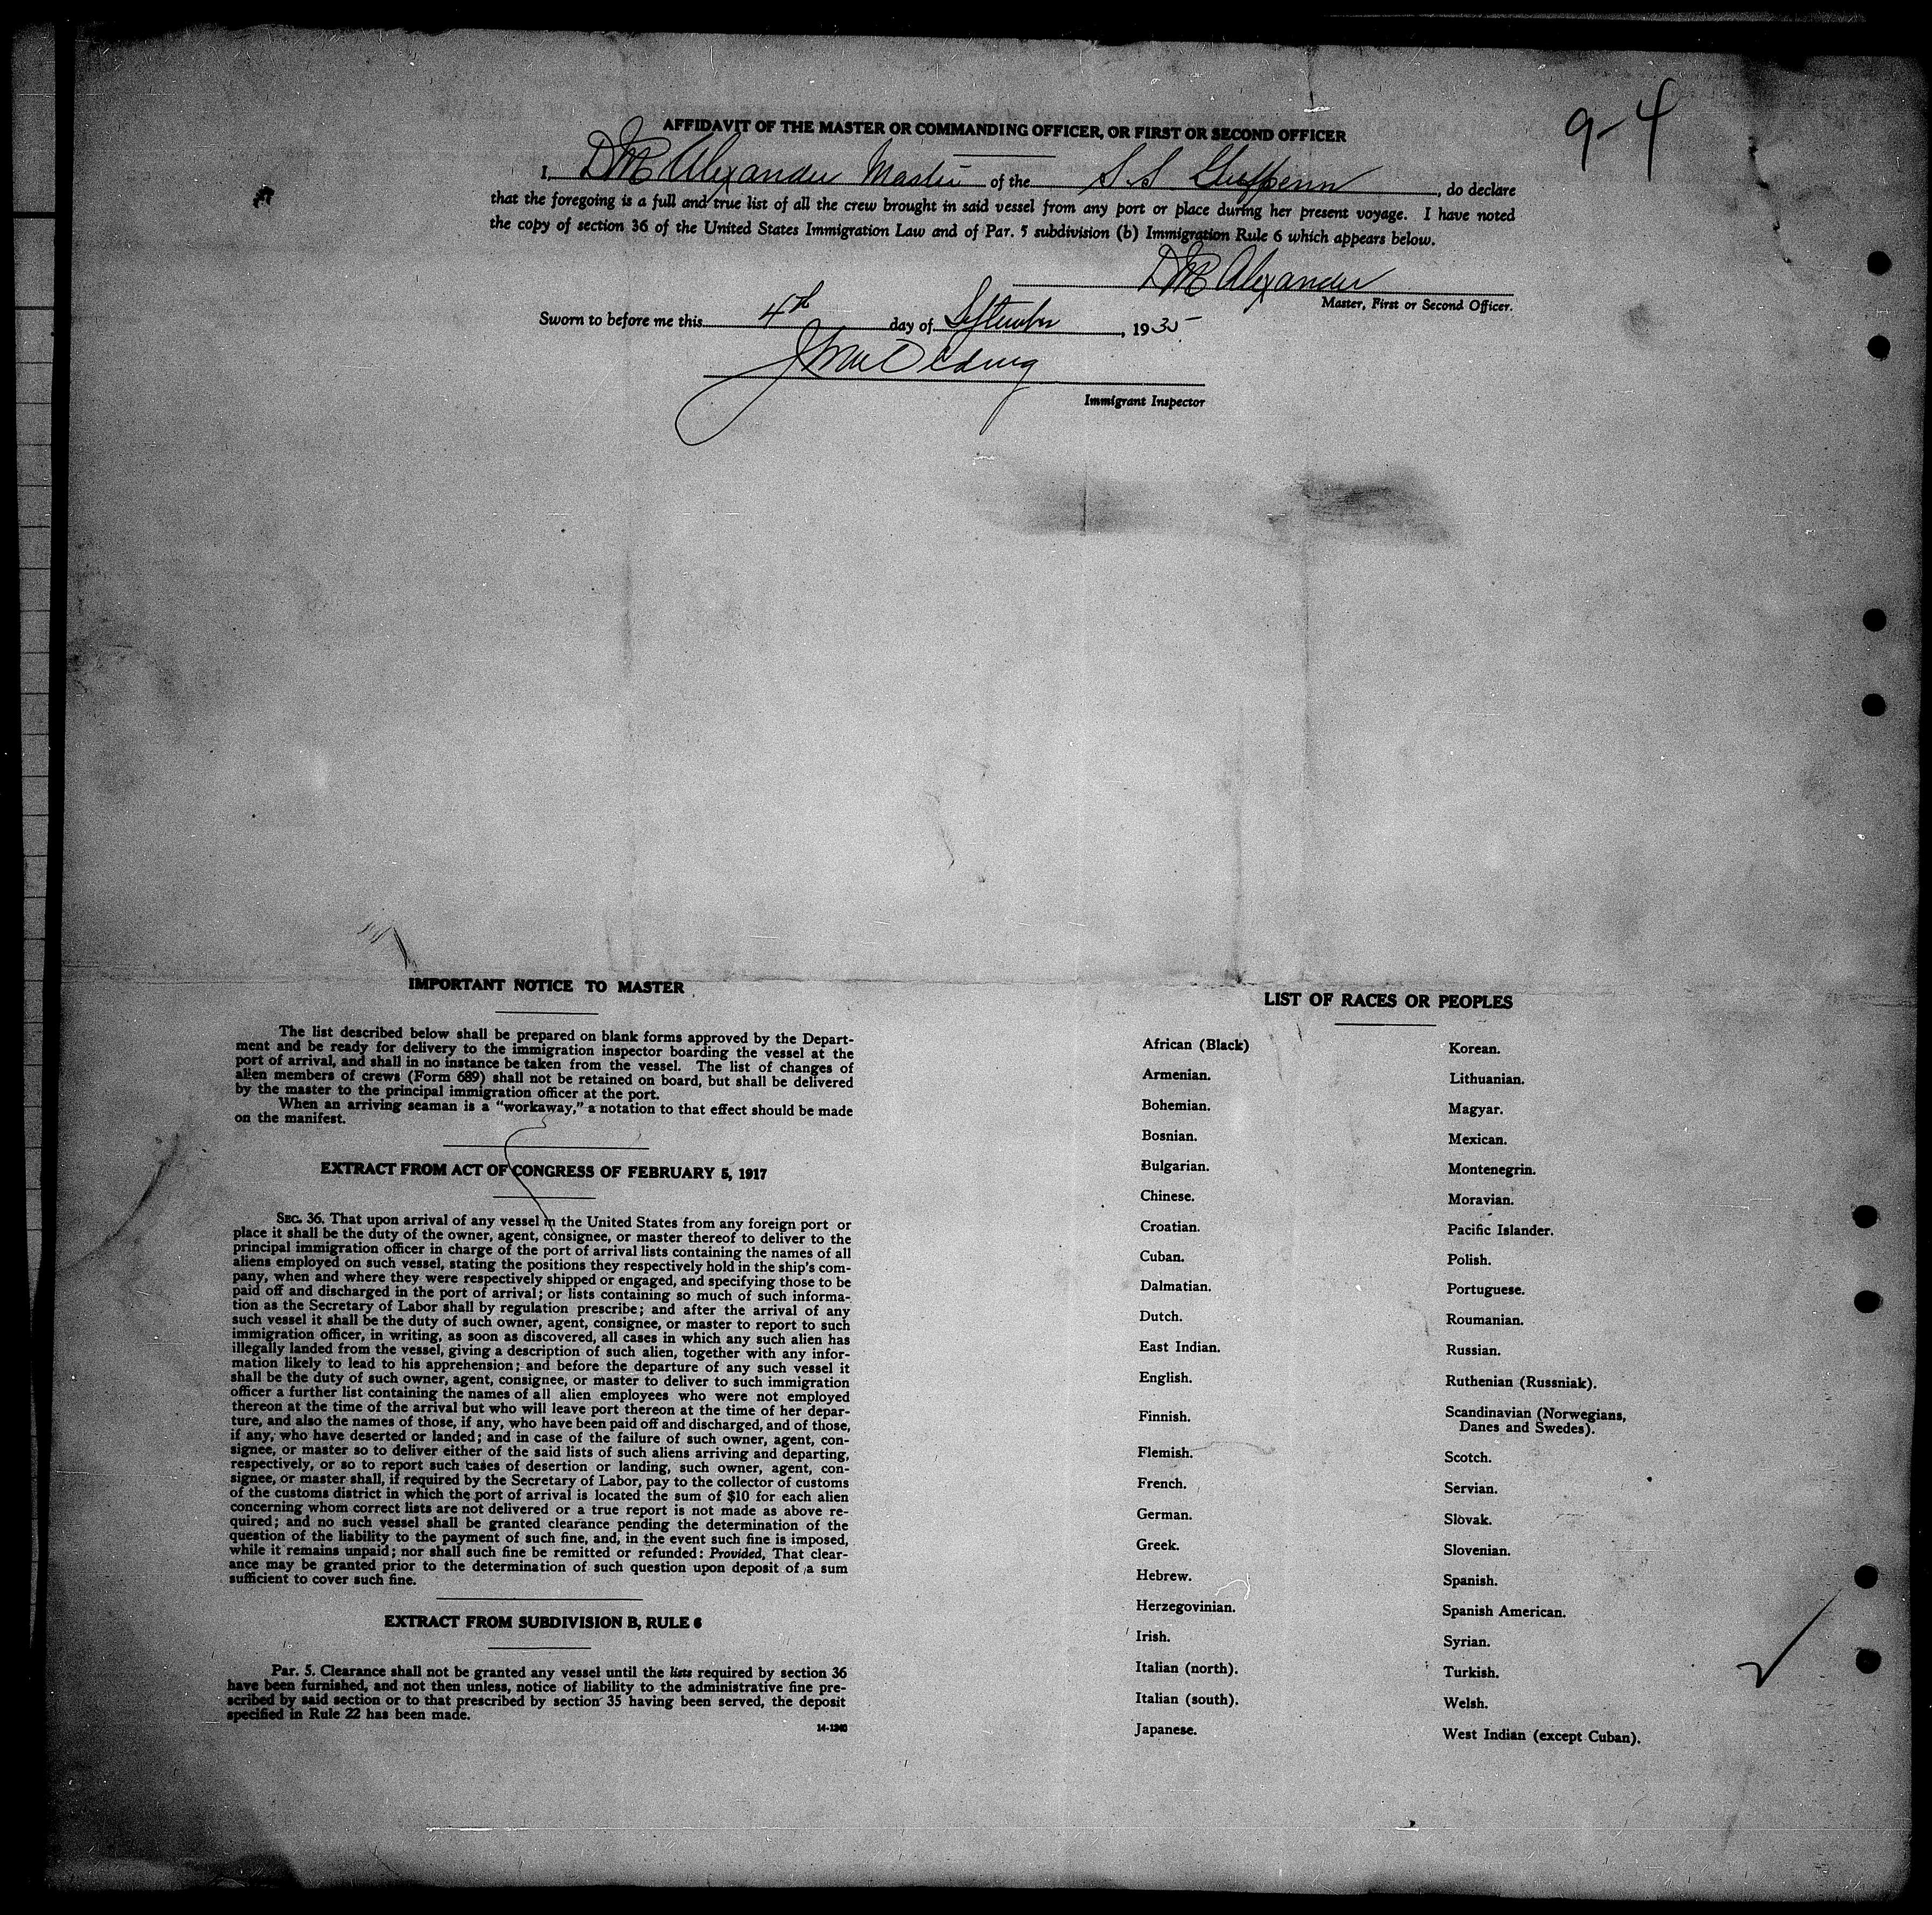 9-4
AFFIDAVIT OF THE MASTER OR COMMANDING OFFICER, OR FIRST OR SECOND OFFICER
I, D M Alexander Master of the S.S. Gulfpenn, do declare
that the foregoing is a full and true list of all the crew brought in said vessel from any port or place during her present voyage. I have noted
the copy of section 36 of the United States Immigration Law and of Par. 5 subdivision (b) Immigration Rule 6 which appears below.
D M Alexander
Master, First or Second Officer.
Sworn to before me this 4th day of September, 1935
Immigrant Inspector
IMPORTANT NOTICE TO MASTER
The list described below shall be prepared on blank forms approved by the Depart-
ment and be ready for delivery to the immigration inspector boarding the vessel at the
port of arrival, and shall in no instance be taken from the vessel. The list of changes of
alien members of crews (Form 689) shall not be retained on board, but shall be delivered
by the master to the principal immigration officer at the port.
When an arriving seaman is a "workaway," a notation to that effect should be made
on the manifest.
EXTRACT FROM ACT OF CONGRESS OF FEBRUARY 5, 1917
SEC. 36. That upon arrival of any vessel in the United States from any foreign port or
place it shall be the duty of the owner, agent, consignee, or master thereof to deliver to the
principal immigration officer in charge of the port of arrival lists containing the names of all
aliens employed on such vessel, stating the positions they respectively hold in the ship's com-
pany, when and where they were respectively shipped or engaged, and specifying those to be
paid off and discharged in the port of arrival; or lists containing so much of such informa-
tion as the Secretary of Labor shall by regulation prescribe; and after the arrival of any
such vessel it shall be the duty of such owner, agent, consignee, or master to report to such
immigration officer, in writing, as soon as discovered, all cases in which any such alien has
illegally landed from the vessel, giving a description of such alien, together with any infor-
mation likely to lead to his apprehension; and before the departure of any such vessel it
shall be the duty of such owner, agent, consignee, or master to deliver to such immigration
officer a further list containing the names of all alien employees who were not employed
thereon at the time of the arrival but who will leave port thereon at the time of her depar-
ture, and also the names of those, if any, who have been paid off and discharged, and of those,
if any, who have deserted or landed; and in case of the failure of such owner, agent, con-
signee, or master so to deliver either of the said lists of such aliens arriving and departing,
respectively, or so to report such cases of desertion or landing, such owner, agent, con-
signee, or master shall, if required by the Secretary of Labor, pay to the collector of customs
of the customs district in which the port of arrival is located the sum of $10 for each alien
concerning whom correct lists are not delivered or a true report is not made as above re-
quired; and no such vessel shall be granted clearance pending the determination of the
question of the liability to the payment of such fine, and, in the event such fine is imposed,
while it remains unpaid; nor shall such fine be remitted or refunded: Provided, That clear-
ance may be granted prior to the determination of such question upon deposit of a sum
sufficient to cover such fine.
EXTRACT FROM SUBDIVISION B, RULE 6
Par. 5. Clearance shall not be granted any vessel until the lists required by section 36
have been furnished, and not then unless, notice of liability to the administrative fine pre-
scribed by said section or to that prescribed by section 35 having been served, the deposit
specified in Rule 22 has been made.
14-1240
LIST OF RACES OR PEOPLES
African (Black)
Armenian.
Bohemian.
Bosnian.
Bulgarian.
Chinese.
Croatian.
Cuban.
Dalmatian.
Dutch.
East Indian.
English.
Finnish.
Flemish.
French.
German.
Greek.
Hebrew.
Herzegovinian.
Irish.
Italian (north).
Italian (south).
Japanese.
Korean.
Lithuanian.
Magyar.
Mexican.
Montenegrin.
Moravian.
Pacific Islander.
Polish.
Portuguese.
Roumanian.
Russian.
Ruthenian (Russniak).
Scandinavian (Norwegians,
Danes and Swedes).
Scotch.
Servian.
Slovak.
Slovenian.
Spanish.
Spanish American.
Syrian.
Turkish.
Welsh.
West Indian (except Cuban).